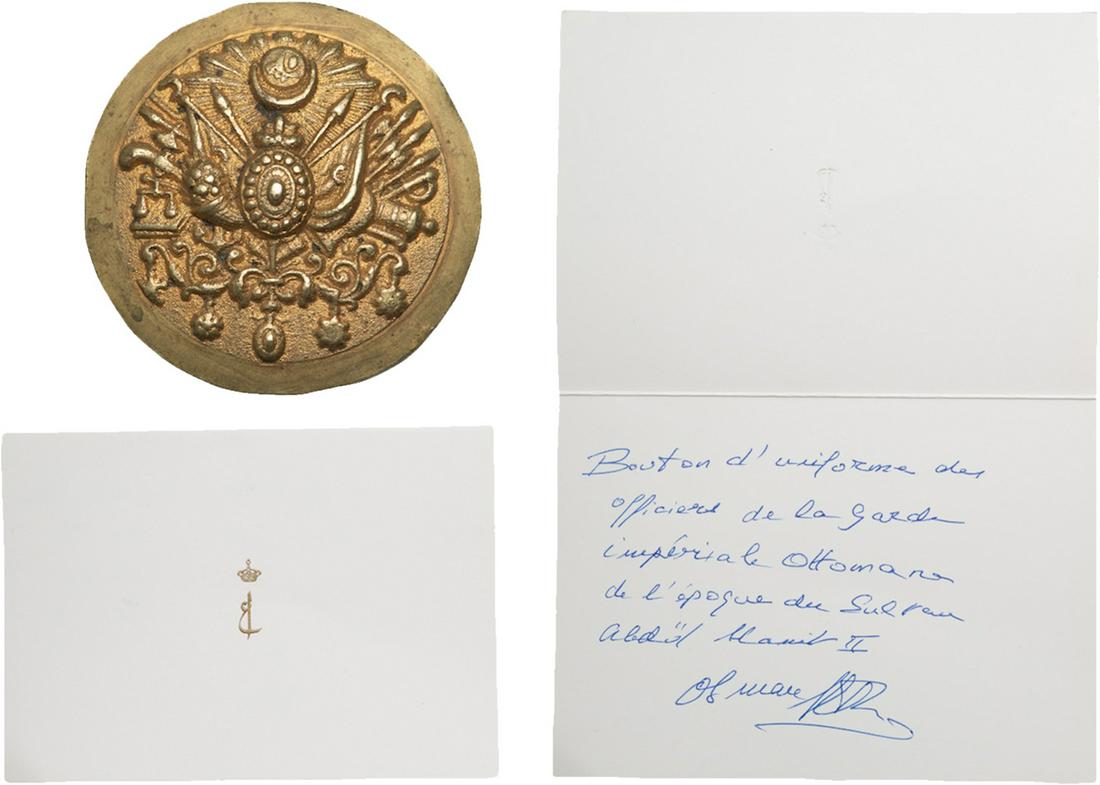 Bouton d'uniforme des
officiers de la Garde
impériale Ottomane
de l'époque du Sultan
Abdül Hamit II
Osman